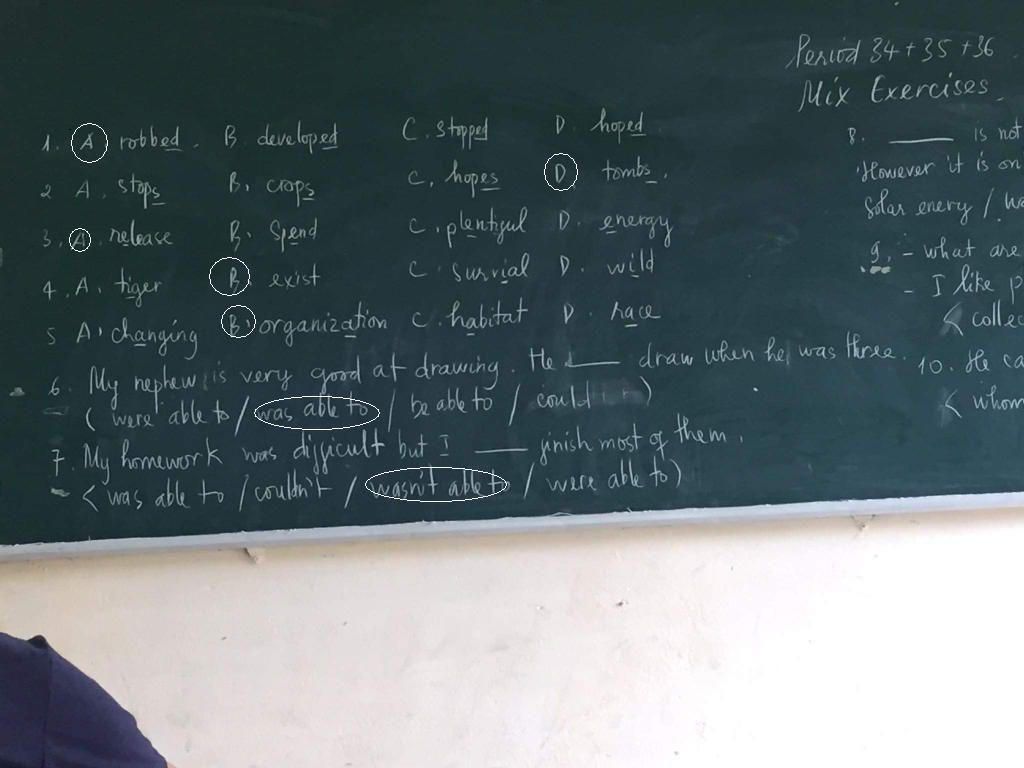 Period 34 + 35 + 36
Mix Exercises
1. A robbed. B. developed C. stopped D. hoped
2 A. stops B. crops C. hopes D. tombs.
3. A. release B. spend C. plentiful D. energy
4. A. tiger B. exist C. survial D. wild
5 A. changing B. organization C. habitat D. race
6. My nephew is very good at drawing. He ___ draw when he was three.
( were able to / was able to / be able to / could )
7. My homework was difficult but I ___ finish most of them.
( was able to / couldn't / wasn't able to / were able to )
8. ___ is not
However it is on
Solar enery /
9. - what are
- I like p
( collec
10. He ca
( whom